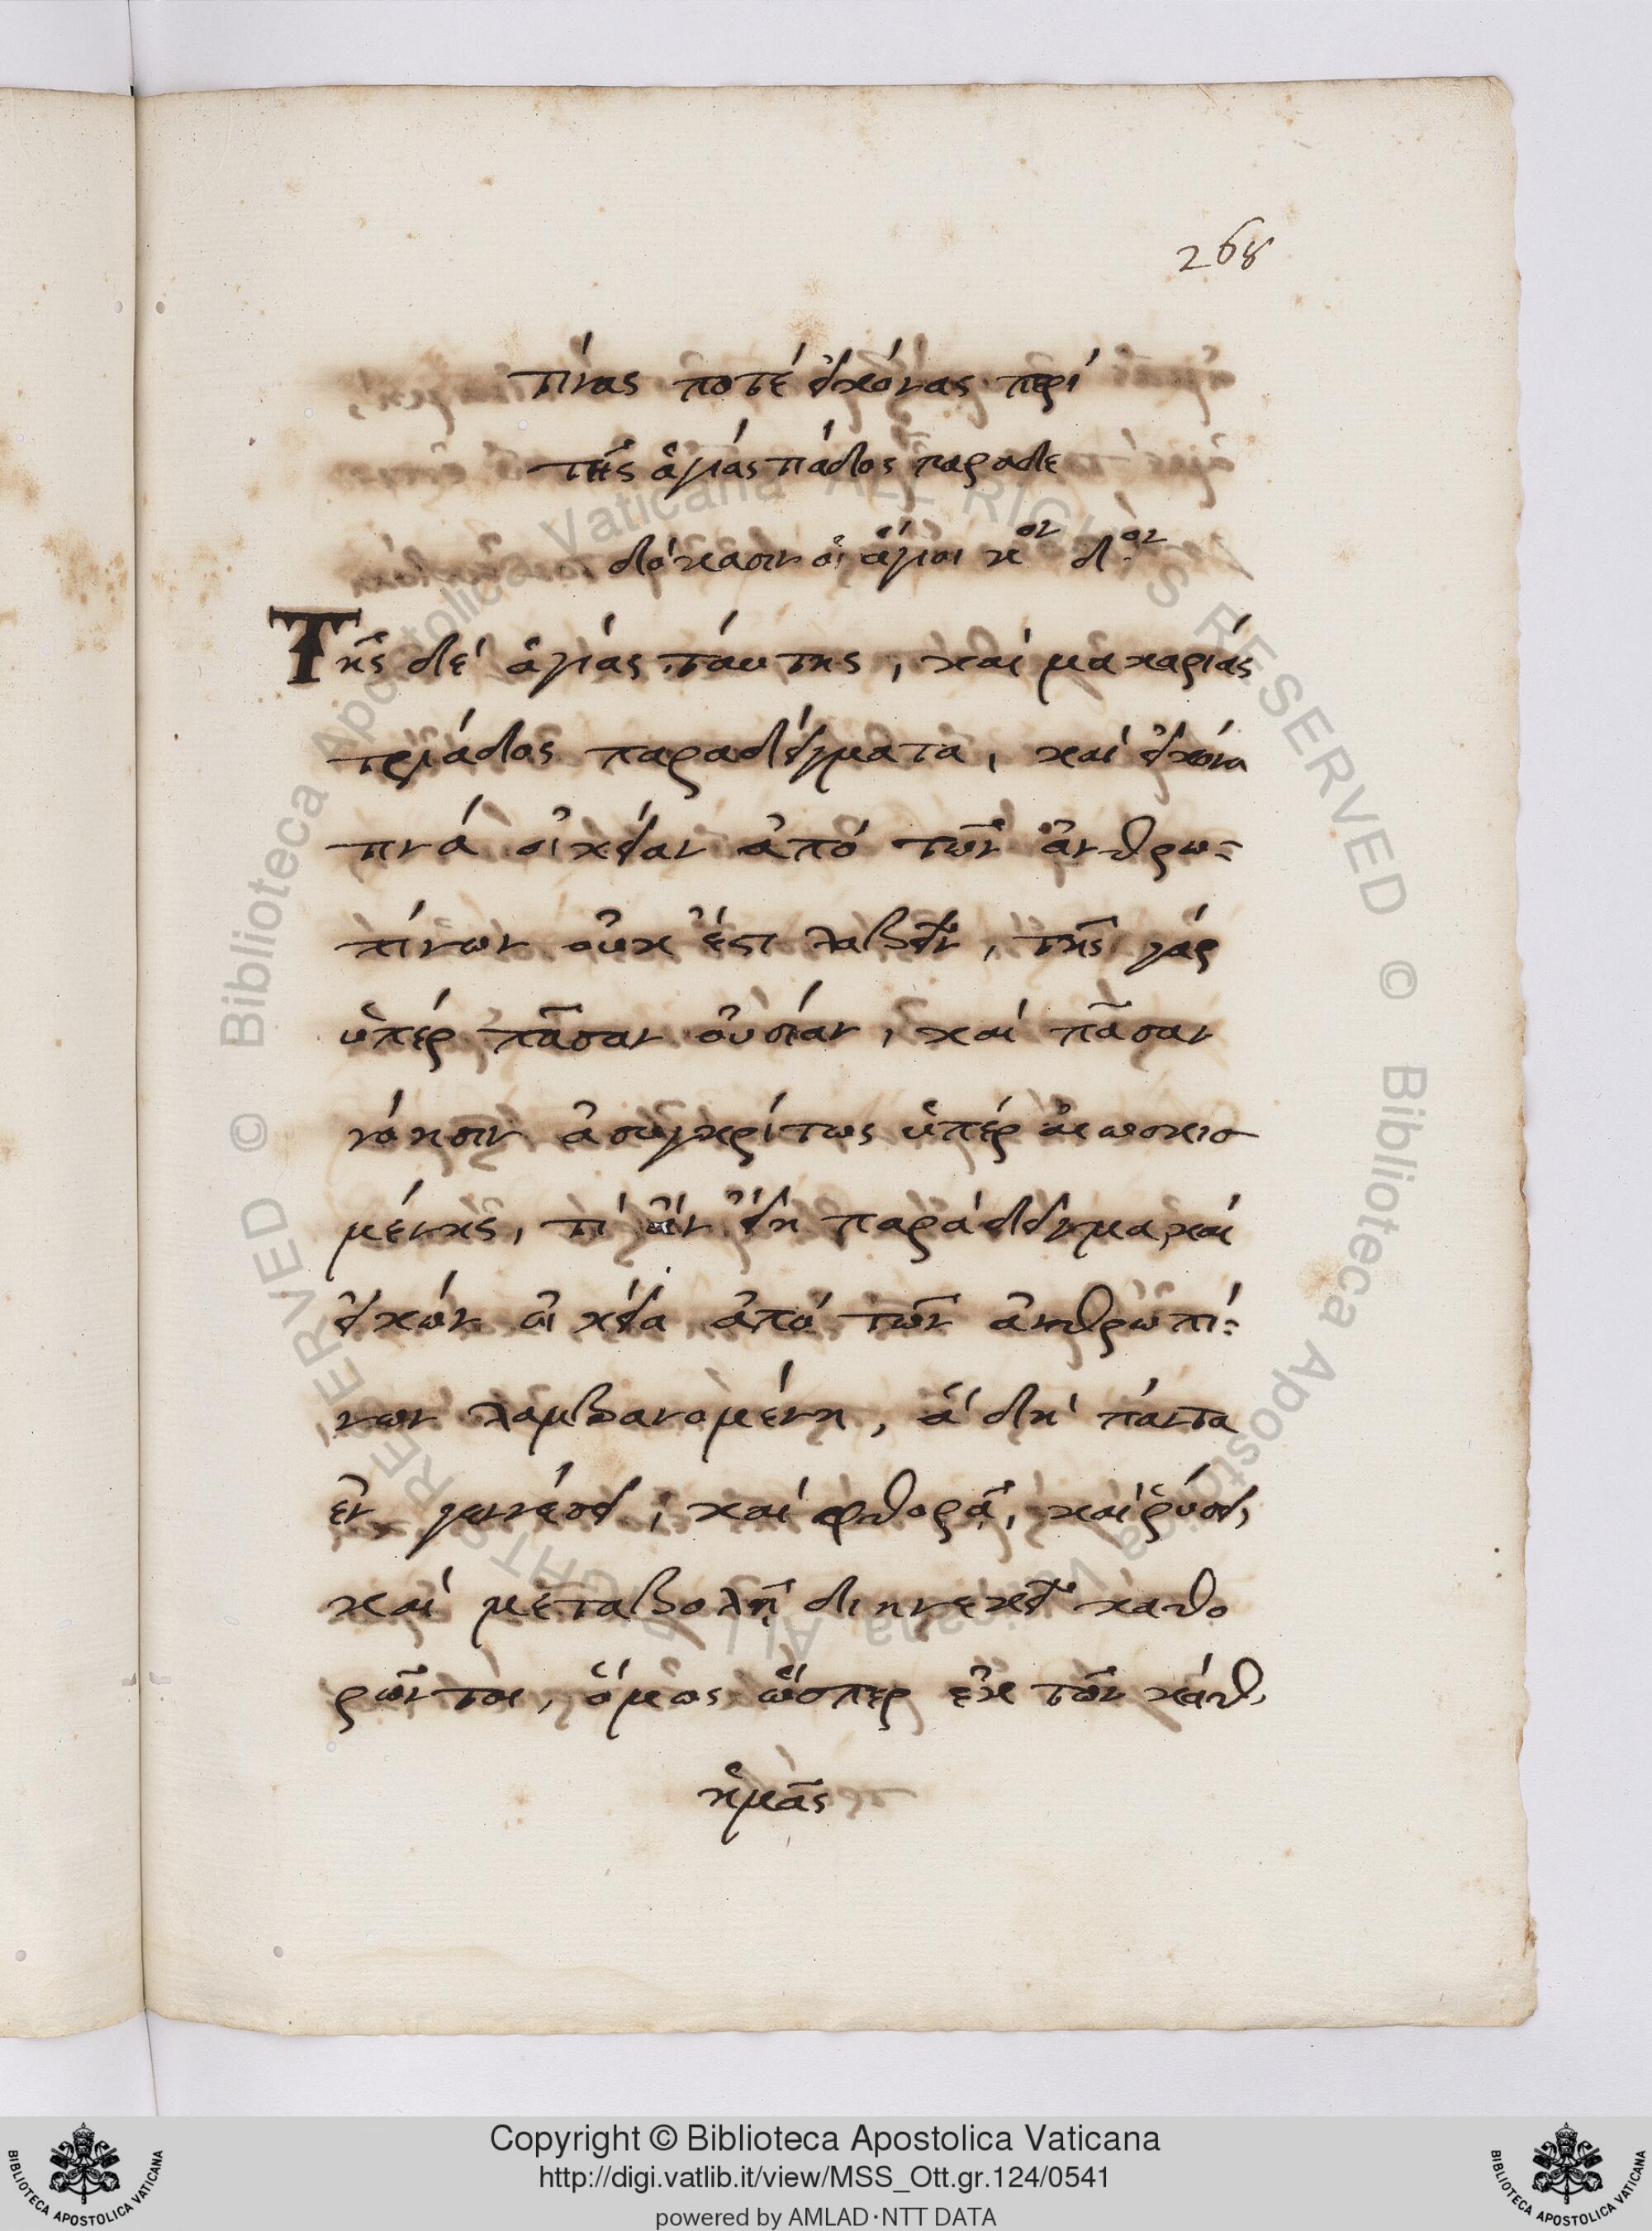 268
τίνας ποτέ εἰκόνας περί
τῆς ἁγιάς πάδος παραδε
δόκασιν οἱ ἅγιοι κον δ.ον
Τῆς δέ ἁγιάς τάυτης, καί μακαριάς
τριάδος παραδείγματα, καί εἰκόνα
τινά οἰκείαν ἀπό τῶν ἀνθρω=
πίνων οὐκ ἔστι λαβεῖν, τῆς γάρ
ὑπέρ πᾶσαν οὐσίαν, καί πᾶσαν
νόησιν ἀσυγκρίτως ὑπέρ
μένης, τί ἄν εἴη παράδειγμα, καί
εἰκών οἰκεία ἀπό τῶν ἀνθρωπί=
νων λαμβανομένη, ἅ δή πάντα
ἐν γεννέσει, καί φθορᾷ, καί ῥύσει,
καί μεταβολῇ διηνεκεῖ καθο
ρῶνται, ὅμως ὥσπερ ἐκ τῶν κάθ,
ἡμᾶς
Copyright © Biblioteca Apostolica Vaticana
http://digi.vatlib.it/view/MSS_Ott.gr.124/0541
powered by AMLAD·NTT DATA
BIBLIOTECA APOSTOLICA VATICANA
BIBLIOTECA APOSTOLICA VATICANA
© Biblioteca Apostolica Vaticana ALL RIGHTS RESERVED © Biblioteca Apostolica Vaticana ALL RIGHTS RESERVED